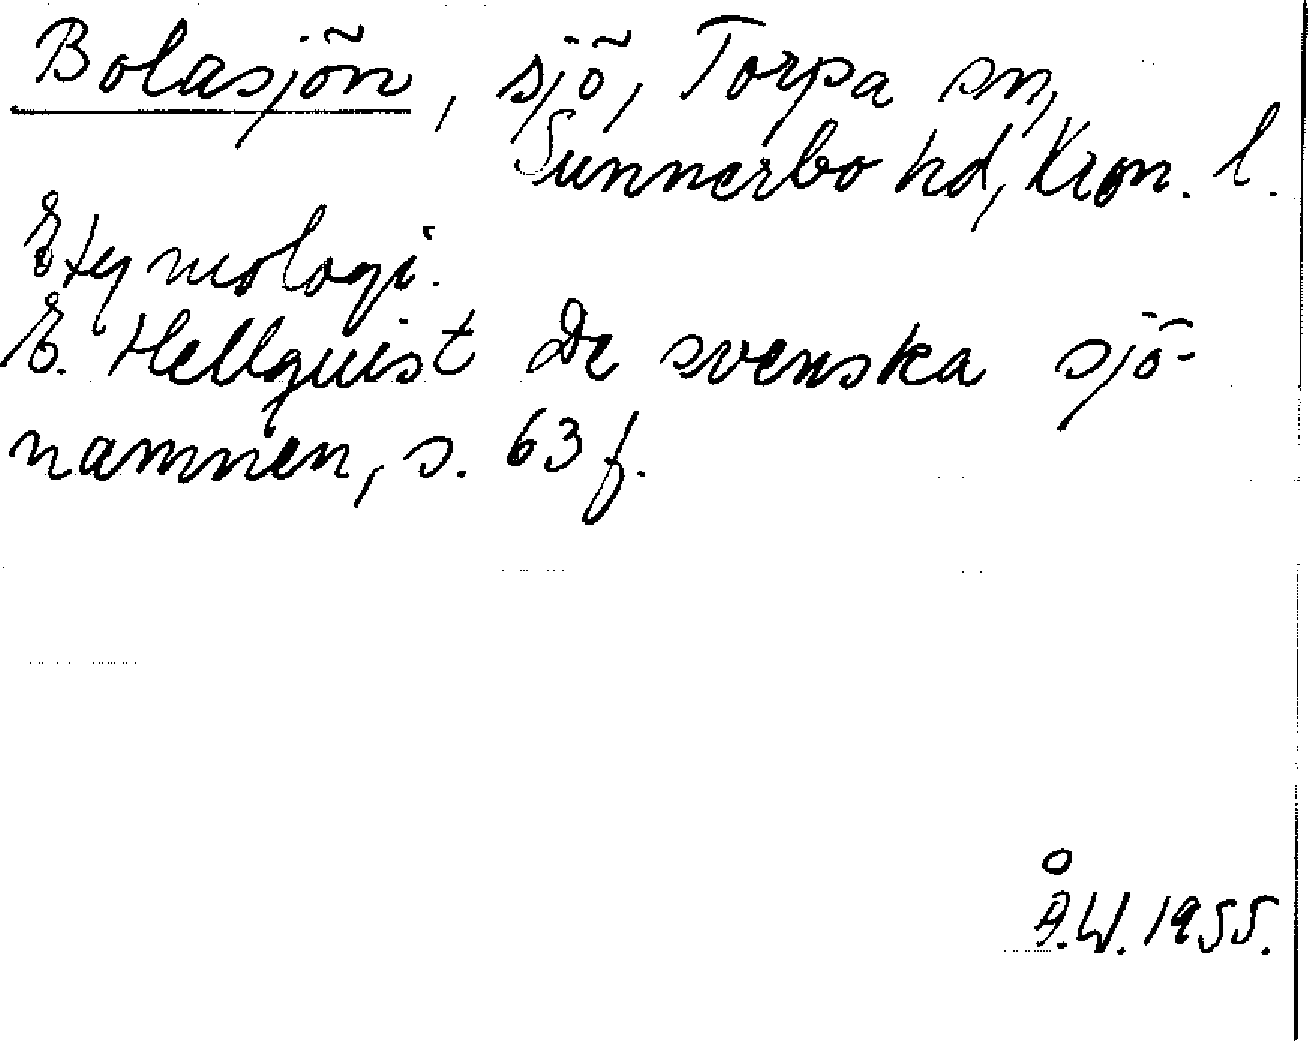 Bolasjön, sjö, Torpa sn,
Sunnerbo hd, Kron. l.
Etymologi.
E. Hellquist De svenska sjö-
namnen, s. 63 f.
Å.W. 1955.